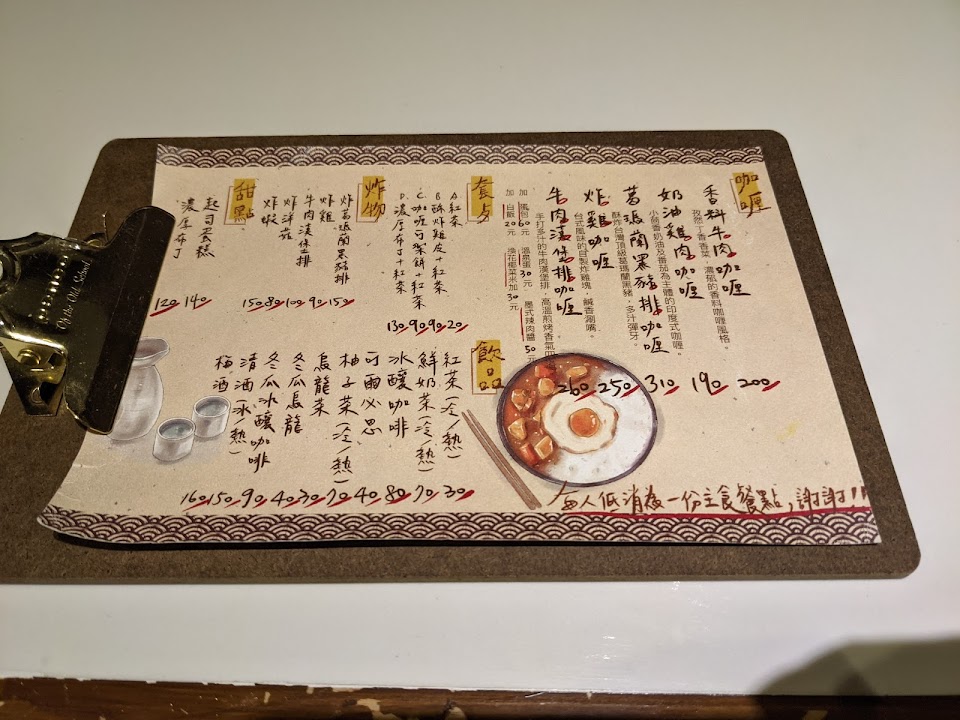 咖喱
香料牛肉咖喱 200
孜然丁香香菜 濃郁的香料咖喱風格。
奶油雞肉咖喱 190
小茴香奶油及番茄為主體的印度式咖喱。
葛瑪蘭黑豬排咖喱 310
酥炸台灣頂級葛瑪蘭黑豬，多汁彈牙。
炸雞咖喱 250
台式風味的自製炸雞塊 鹹香涮嘴。
牛肉漢保排咖喱 260
手打多汁的牛肉漢堡排 高溫煎烤香氣四
加 60元 溫泉蛋30元 墨式辣肉醬 50元
加 白飯20元 換花椰菜米加30元
套歺
A紅茶 20
B酥炸雞皮+紅茶 90
C咖喱可樂餅+紅茶 90
D濃厚布丁+紅茶 130
炸物
炸葛瑪蘭黑豬排 150
炸雞 90
牛肉漢保排 100
炸洋菇 80
炸蝦 150
甜點
起司蛋糕 140
濃厚布丁 120
飲品
紅茶(冷/熱) 30
鮮奶茶(冷/熱) 70
冰釀咖啡 80
可爾必思 40
柚子茶(冷/熱) 70
烏龍茶 30
冬瓜烏龍 40
冬瓜冰釀咖啡 90
清酒(冰/熱) 150
梅酒 160
每人低消為一份主食餐點,謝謝!!
Of the Old School